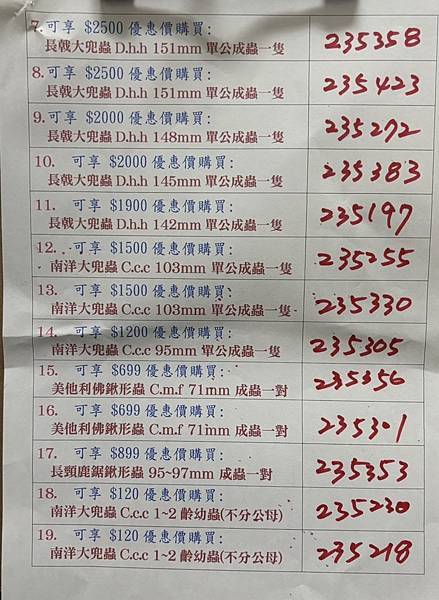 7.可享 $2500 優惠價購買:
長戟大兜蟲 D.h.h 151mm 單公成蟲一隻
235358
8.可享 $2500 優惠價購買:
長戟大兜蟲 D.h.h 151mm 單公成蟲一隻
235423
9.可享 $2000 優惠價購買:
長戟大兜蟲 D.h.h 148mm 單公成蟲一隻
235272
10. 可享 $2000 優惠價購買:
長戟大兜蟲 D.h.h 145mm 單公成蟲一隻
235383
11. 可享 $1900 優惠價購買:
長戟大兜蟲 D.h.h 142mm 單公成蟲一隻
235197
12. 可享 $1500 優惠價購買:
南洋大兜蟲 C.c.c 103mm 單公成蟲一隻
235255
13. 可享 $1500 優惠價購買:
南洋大兜蟲 C.c.c 103mm 單公成蟲一隻
235330
14. 可享 $1200 優惠價購買:
南洋大兜蟲 C.c.c 95mm 單公成蟲一隻
235305
15. 可享 $699 優惠價購買:
美他利佛鍬形蟲 C.m.f 71mm 成蟲一對
235356
16. 可享 $699 優惠價購買:
美他利佛鍬形蟲 C.m.f 71mm 成蟲一對
235301
17. 可享 $899 優惠價購買:
長頸鹿鋸鍬形蟲 95~97mm 成蟲一對
235353
18. 可享 $120 優惠價購買:
南洋大兜蟲 C.c.c 1~2 齡幼蟲(不分公母)
235230
19. 可享 $120 優惠價購買:
南洋大兜蟲 C.c.c 1~2 齡幼蟲(不分公母)
235218